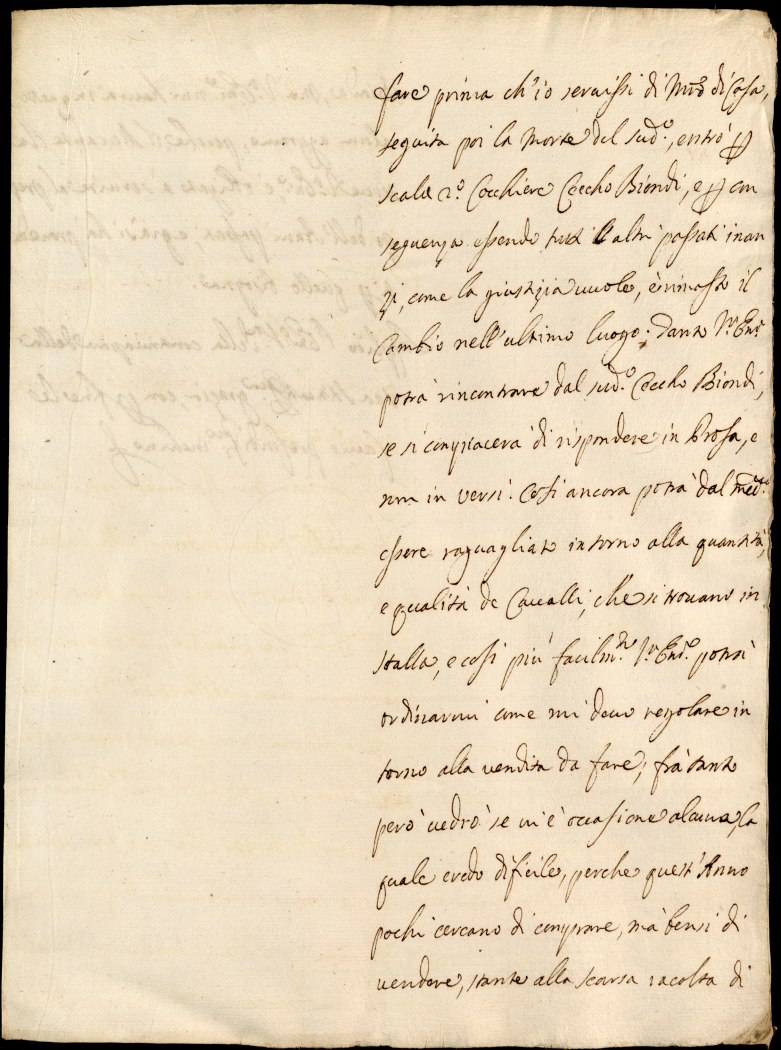 fare prima ch'io seruissi di Mro di Casa,
seguita poi la morte del sudo., entrò p
scala 2o. Cocchiere Ceccho Biondi, e p con
seguenza essendo tutti l'altri passati inan
zi, come la giustizia uuole, è rimasto il
Cambio nell'ultimo luogo; tanto Va. Enza.
potrà rincontrare dal sudo. Ceccho Biondi,
se si compiacerà di rispondere in Prosa, e
non in versi. Così ancora potrà dal medo.
essere raguagliato intorno alla quantità,
e qualità de Caualli, che si trouano in
stalla, e così più facilmte. Va. Enza. potrà
ordinarmi come mi deuo regolare in
torno alla vendita da fare; frà tanto
però uedrò se ui è occasione alcuna, la
quale credo dificile, perche quest'Anno
pochi cercano di comprare, mà bensi di
vendere, stante alla scarsa racolta di